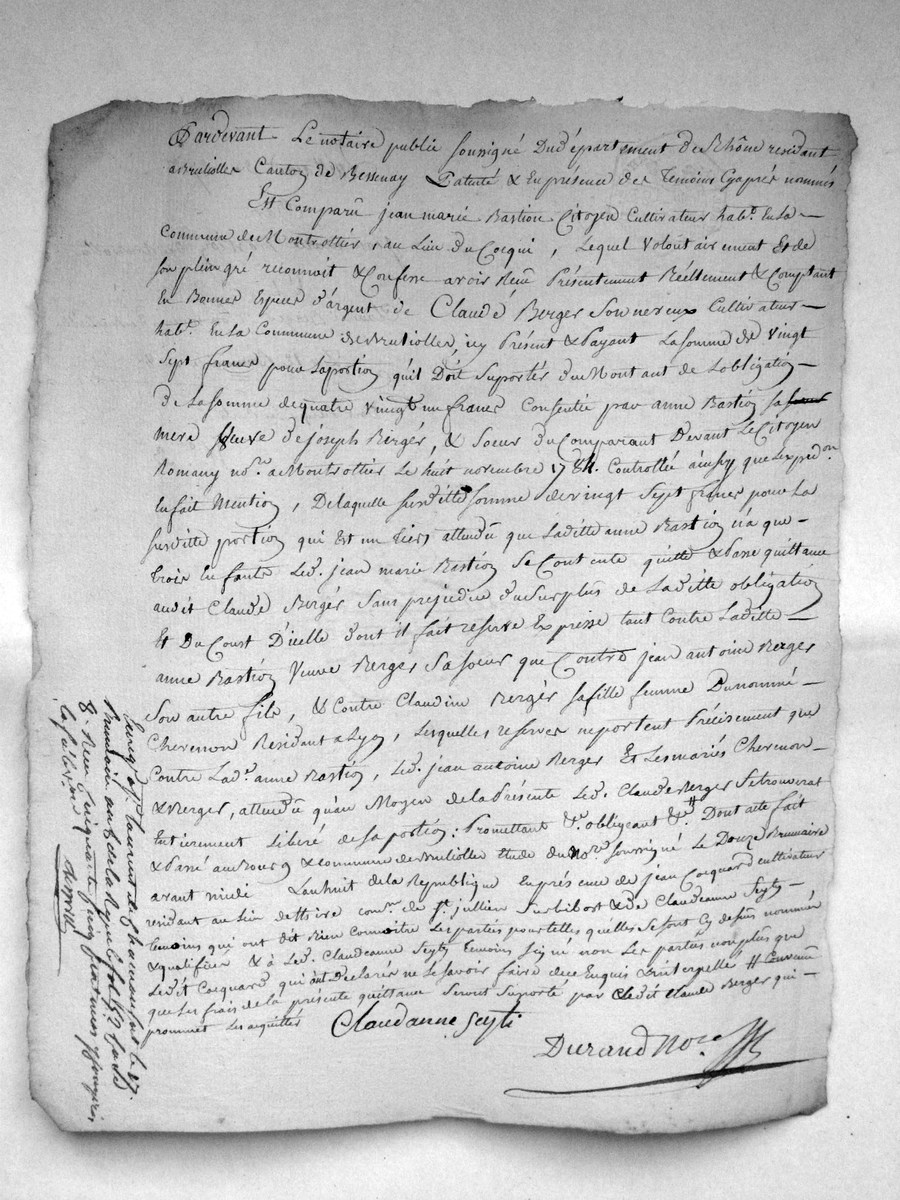 Pardevant Le notaire public soussigné Du département du Rhône résidant
a Brullioles Canton de Bessenay Patenté & En présence des Temoins Cyaprés nommés
Est Comparû jean marie Bastion Citoyen Cultivateur habt. En La
Commune de Montrottier, au Lieu du Cocqui, Lequel Volontairement Et de
son plein gré reconnoit & Confesse avoir Reçu Présentement Réellement & Comptant
En Bonnes Especes d'argent de Claude Berger Son neveux Cultivateur
habt. En La Commune de Brullioles, icy Présent & Payant La somme de vingt
Sept francs pour La portion qu'il Doit Suportés du Montant de Lobligation
De La somme de quatre vingt un francs Consentie par anne Bastion sa
mere veuve de joseph Bergér, & Soeur du Comparant Devant Le Citoyen
Romany nore. a Montrottier Le huit novembre 178 . Controllée ainsy que Lexpedon.
En fait Mention, De laquelle susditte somme de vingt Sept francs pour La
susditte portion qui Est un tiers attendu que Laditte anne Bastion n'a que
trois Enfants Led. jean marie Bastion Se Contente quitte & Passe quittance
audit Claude Bergér Sans prejudice du Surplus de Laditte obligation
Et Du Court D'icelle dont il fait reserve Expresse tant Contre Laditte
anne Bastion Veuve Berger Sa soeur que Contre jean antoine Berger
Son autre fils, & Contre Claudine Bergér sa fille femme Du nommé
Chevenon Residant a Lyon, Lesquelles reserves ne portent Précisement que
Contre Lad. anne Bastion, Led. jean antoine Berger Et Les mariés Chevenon
& Berger, attendu qu'au Moyen de La Présente Led. Claude Berger Se trouverat
Entierement Liberé de sa portion: Promettant &c. obligeant &c. # Dont acte fait
& Passé au Bourg & commune de Brullioles Etude du Nore. soussigné Le Douze Brumaire
avant midi Lan huit de la Republique En présence de jean Cocquard cultivateur
residant au Lieu de comne. de St. jullien Sur bibost & de Claudeanne Seyty
temoins qui ont dit Bien Connoitre Les parties pour telles qu'elles Se sont Cy dessus nommée
& qualifiée & a Led. Claudeanne Seyty Temoins Signé non Les parties non plus que
Ledit Cocquard qui ont Declarés ne Le savoir faire de ce Enquis & interpellé # Convenu
que Les frais de La présente quittance Seront Suporté par Ledit Claude Berger qui
promet Les aquitter
Claudanne Seyti
Durand Nore
Enregt. a St. Laurent de Chamousset le 27.
Brumaire an 8 de la Republ. fol. Ce.
8. Reçu Cinquante Cinq Centimes y Compris
la subvention